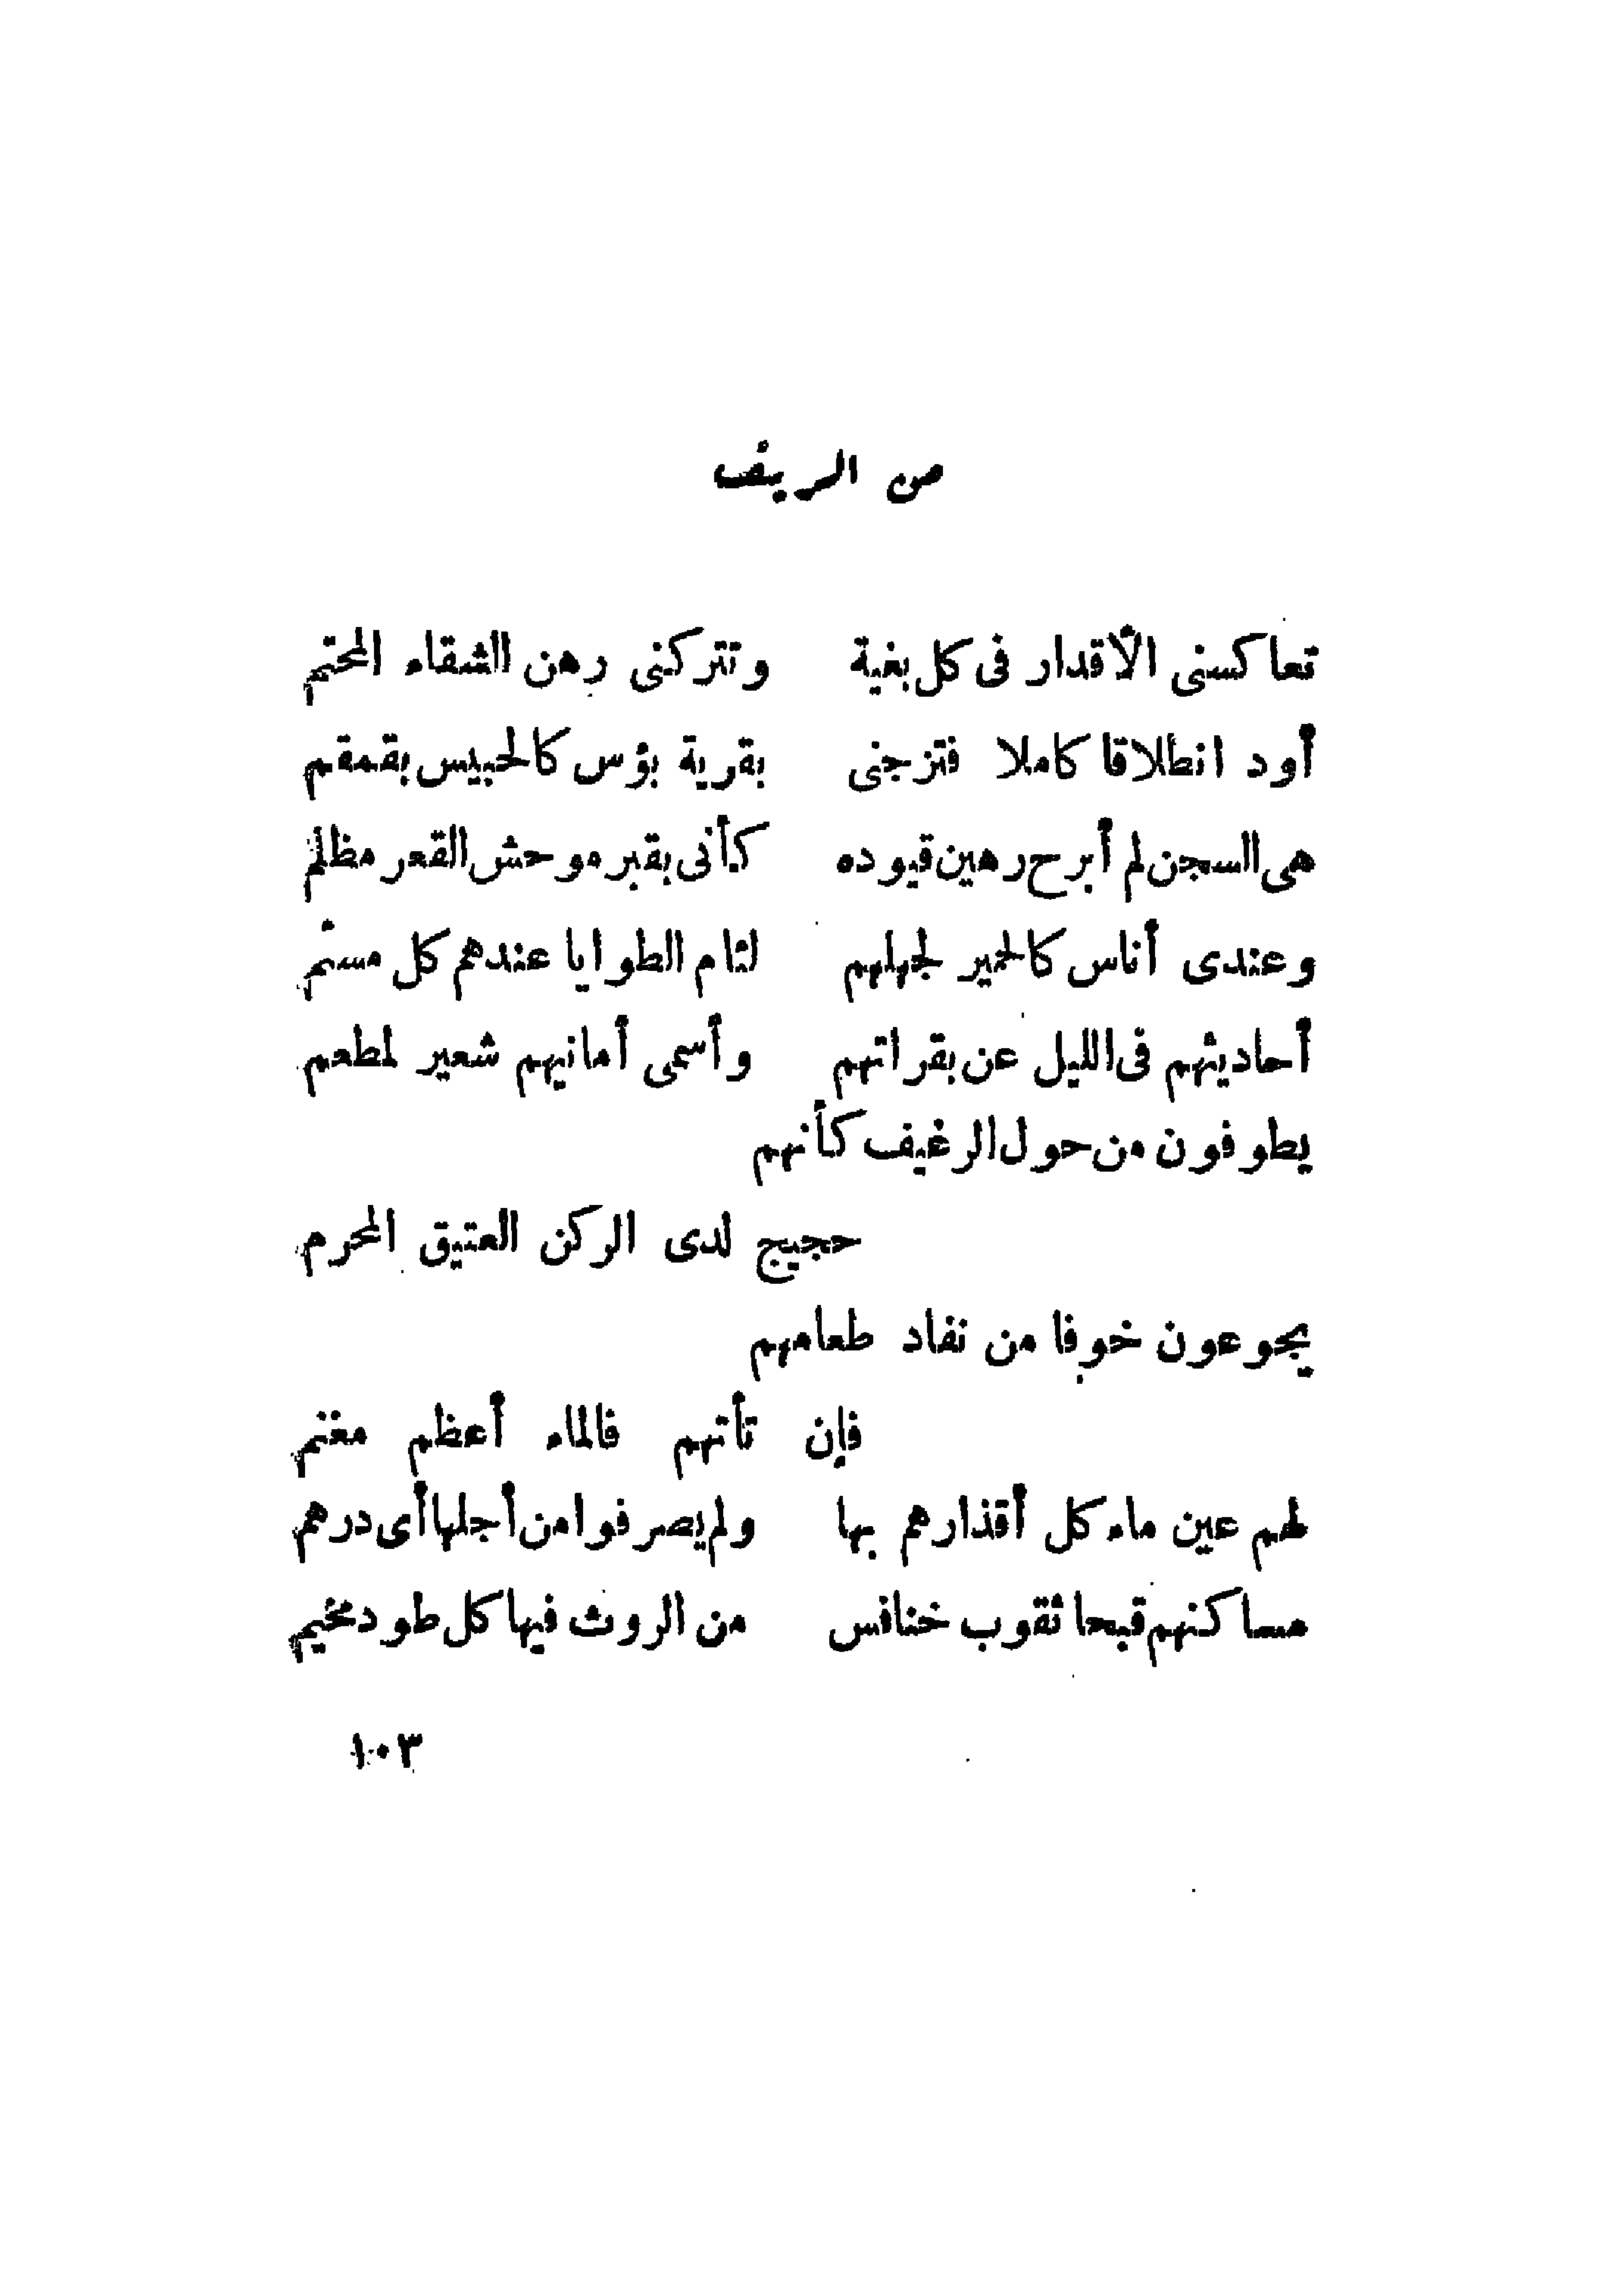 من الريف
تعاكسنى الأقدار فى كل بغية وتتركنى رهن الشقاء المحتم
أود انطلاقا كاملا فتزجنى بقرية بؤس كالحبيس بقمقم
هى السجن لم أبرح رهين قيوده كأنى بقبر موحش القعر مظلم
وعندى أناس كالحمير لجهلهم لئام الطوايا عندهم كل مسئم
أحاديثهم فى الليل عن بقراتهم وأسمى أمانيهم شعير لمطعم
يطوفون من حول الرغيف كأنهم
حجيج لدى الركن العتيق المحرم
يجوعون خوفا من نفاد طعامهم
فإن تأتهم فالماء أعظم مغنم
لهم عين ماء كل أقذارهم بها ولم يصرفوا من أجلها أى درهم
مساكنهم قبحا ثقوب خنافس من الروث فيها كل طود مخيم
١٠٣